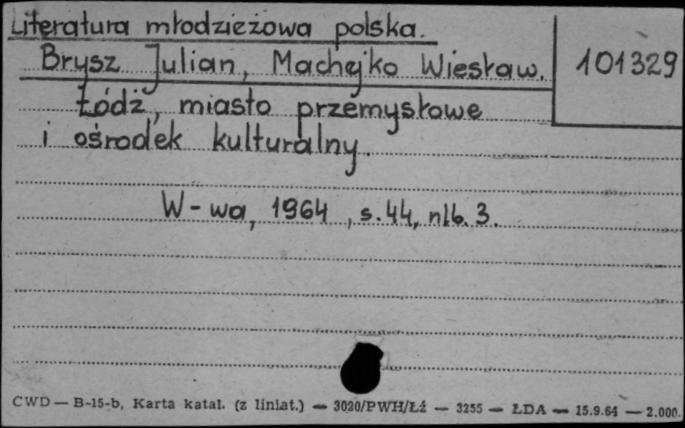 Literatura młodzieżowa polska.
Brysz Julian, Machejko Wiesław.
101329
Łódź, miasto przemysłowe
i ośrodek kulturalny.
W-wa, 1964, s. 44, nlb. 3.
CWD — B-15-b, Karta katal. (z liniat.) — 3020/PWH/Łź — 3255 — ŁDA — 15.9.64 — 2.000.